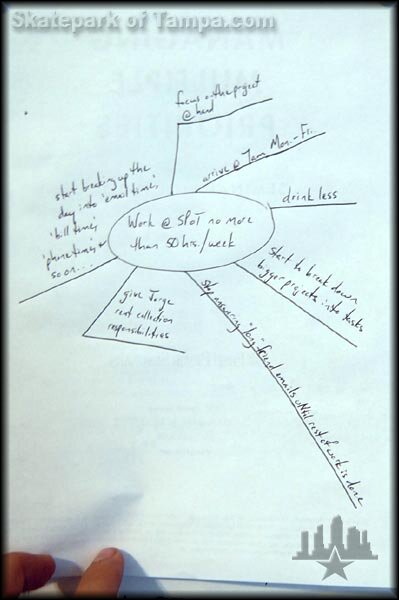 Skatepark of Tampa.com
MANAGING
MULTIPLE
PRIORITIES
focus on the project
@ hand
arrive @ 7am Mon.-Fri.
drink less
start breaking up the
day into 'email time',
'bill time',
'phone time' +
so on...
Work @ SPoT no more
than 50 hrs./week
Start to break down
bigger projects into tasks
give Jorge
rent collection
responsibilities
Stop answering "long" friend emails until rest of work is done